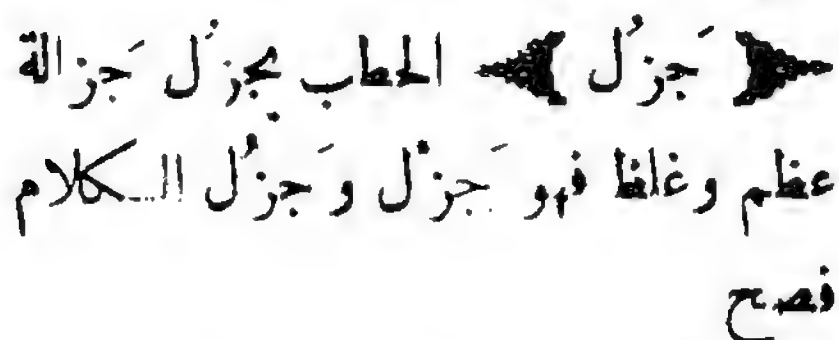 ﴿ جَزُل ﴾ الحطاب يجزُل جَزالة
عظم وغلظ فهو جَزْل وجَزُل الكلام
فصح